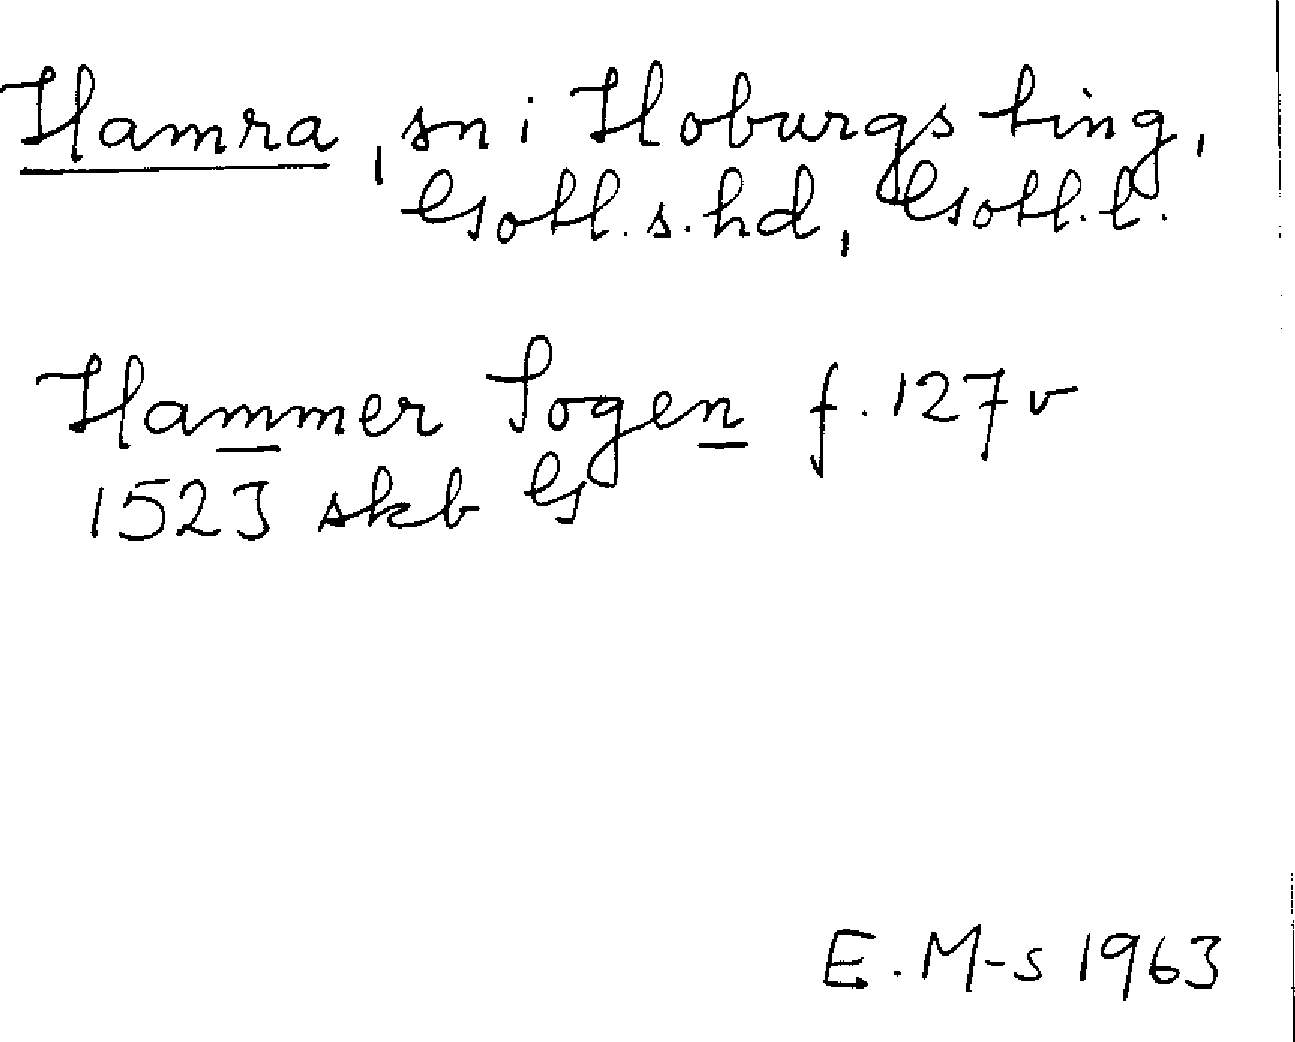 Hamra, sn i Hoburgs ting,
Gotl. s. hd, Gotl. l.
Hammer Sogen f. 127 v
1523 skb G
E. M-s 1963